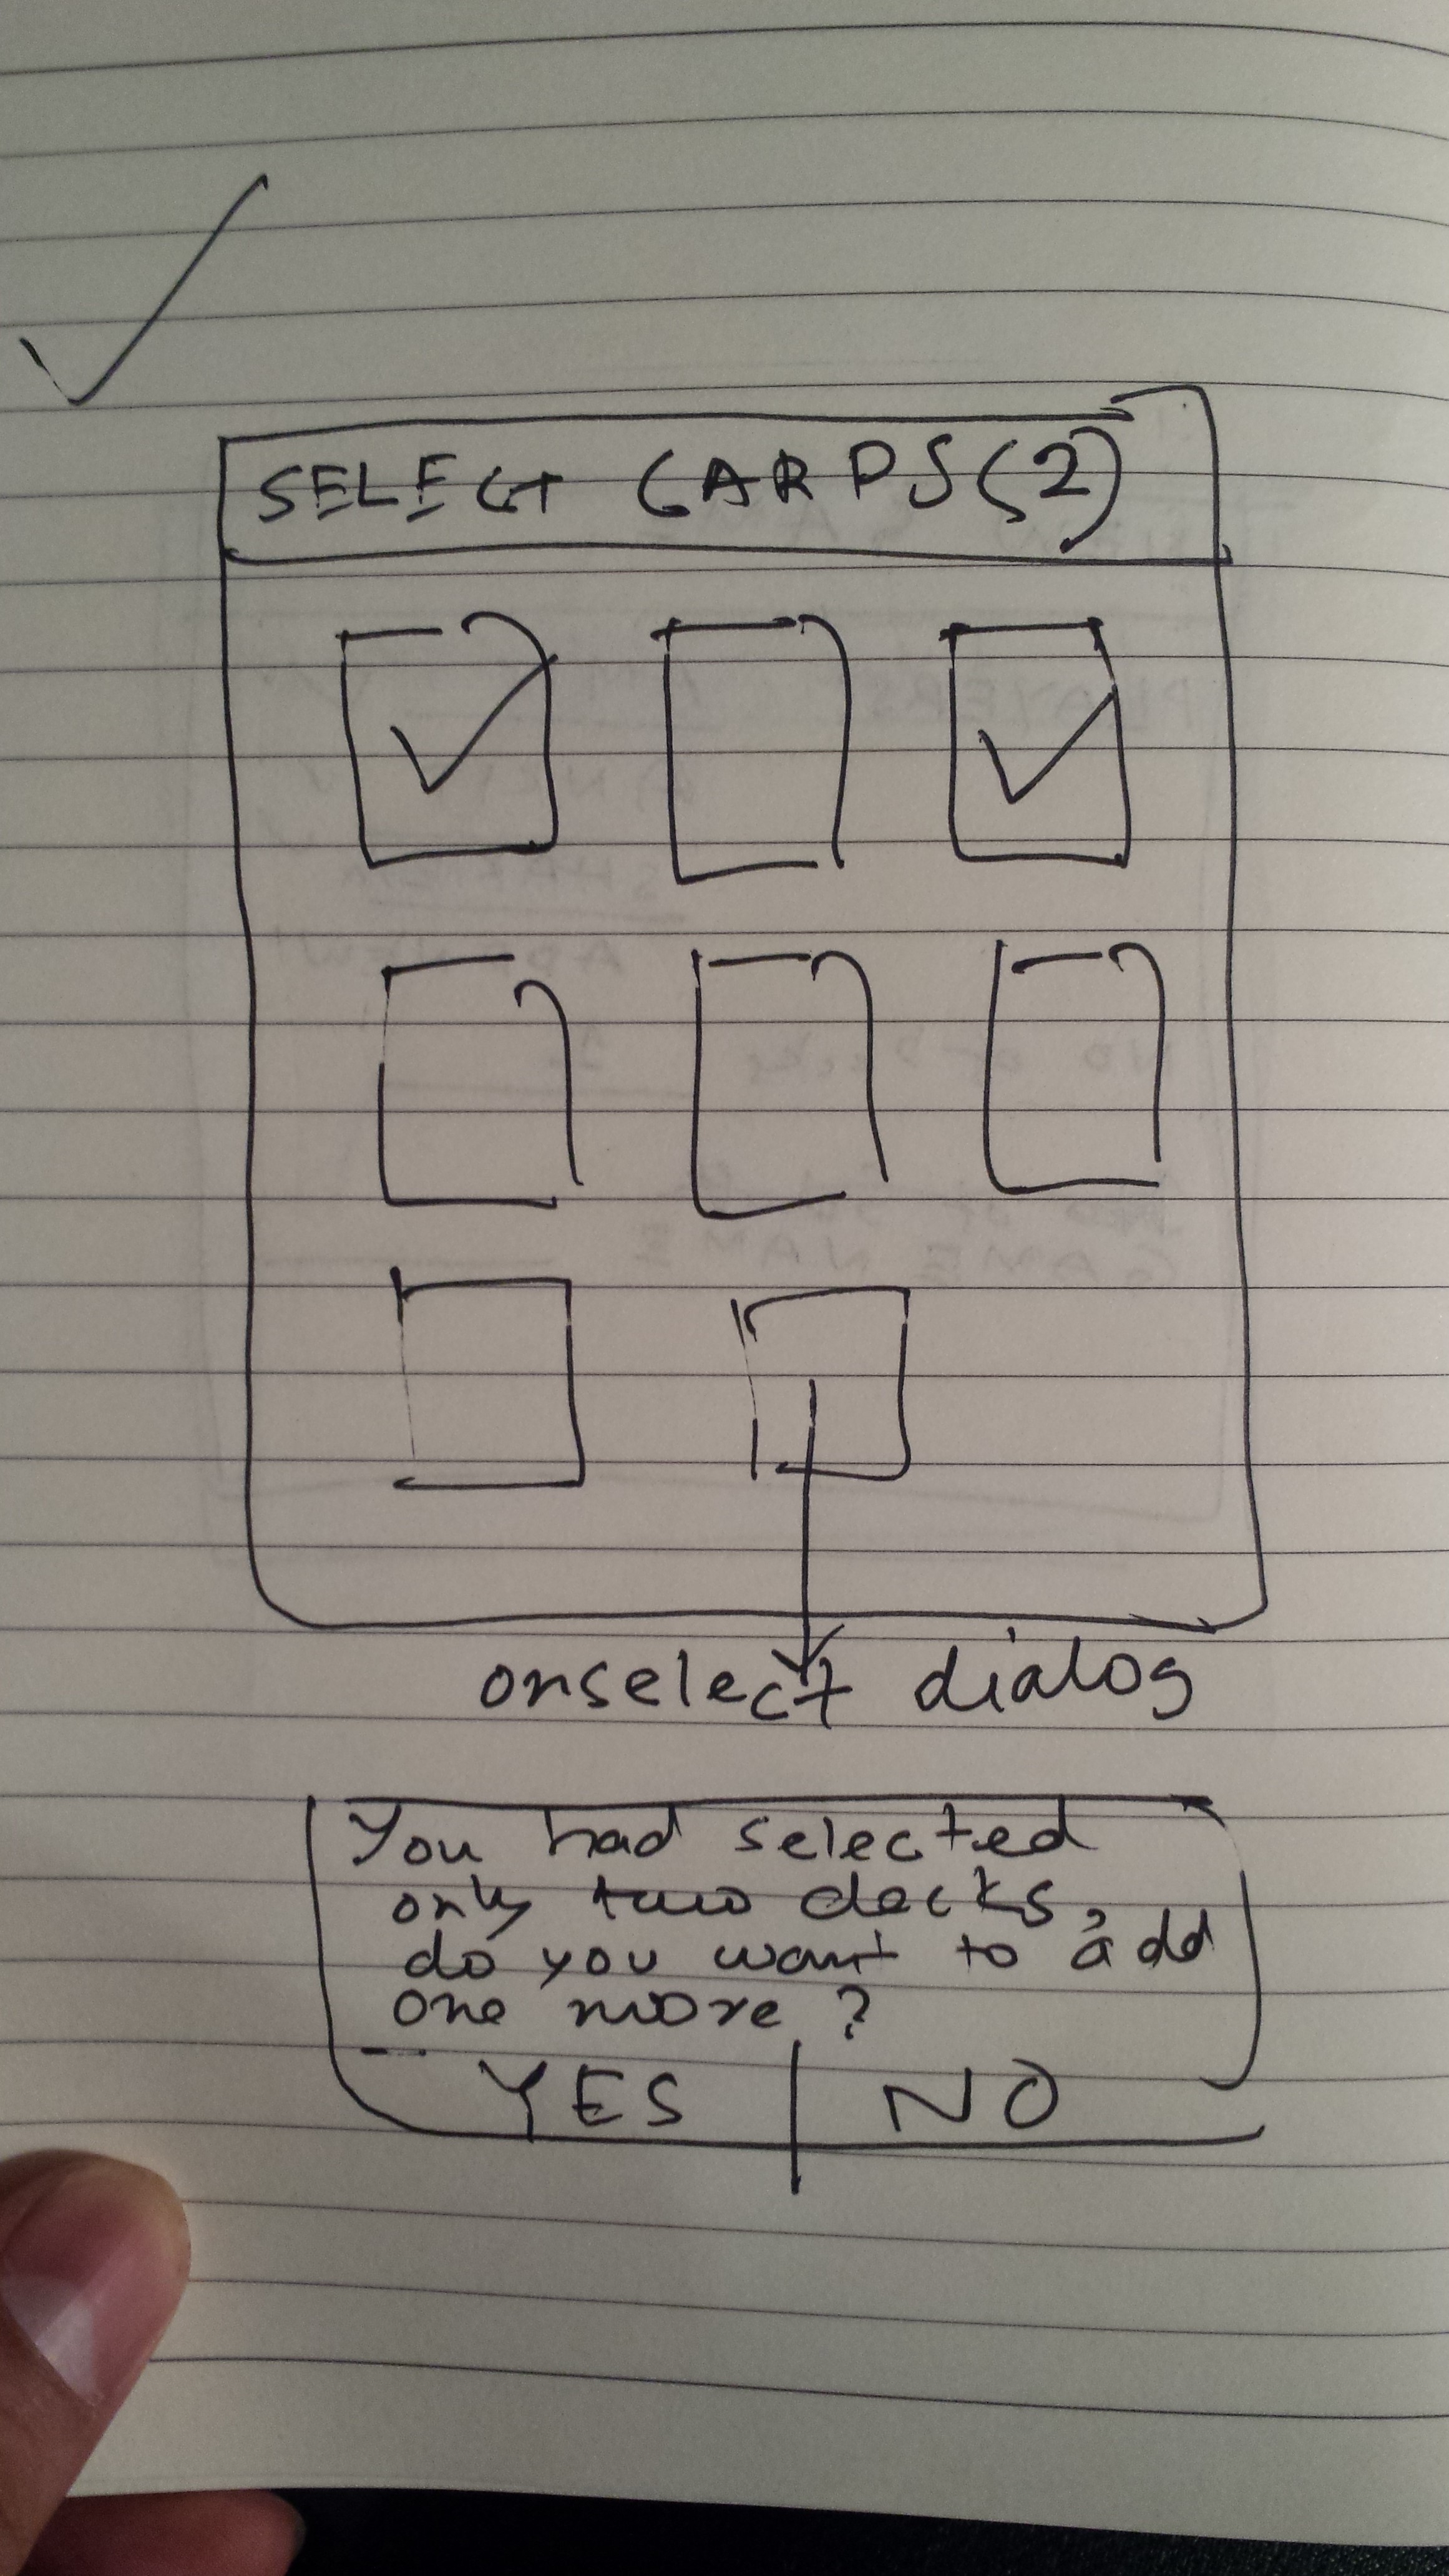 SELECT CARDS(2)
onselect dialog
You had selected
only two decks,
do you want to add
one more ?
YES | NO